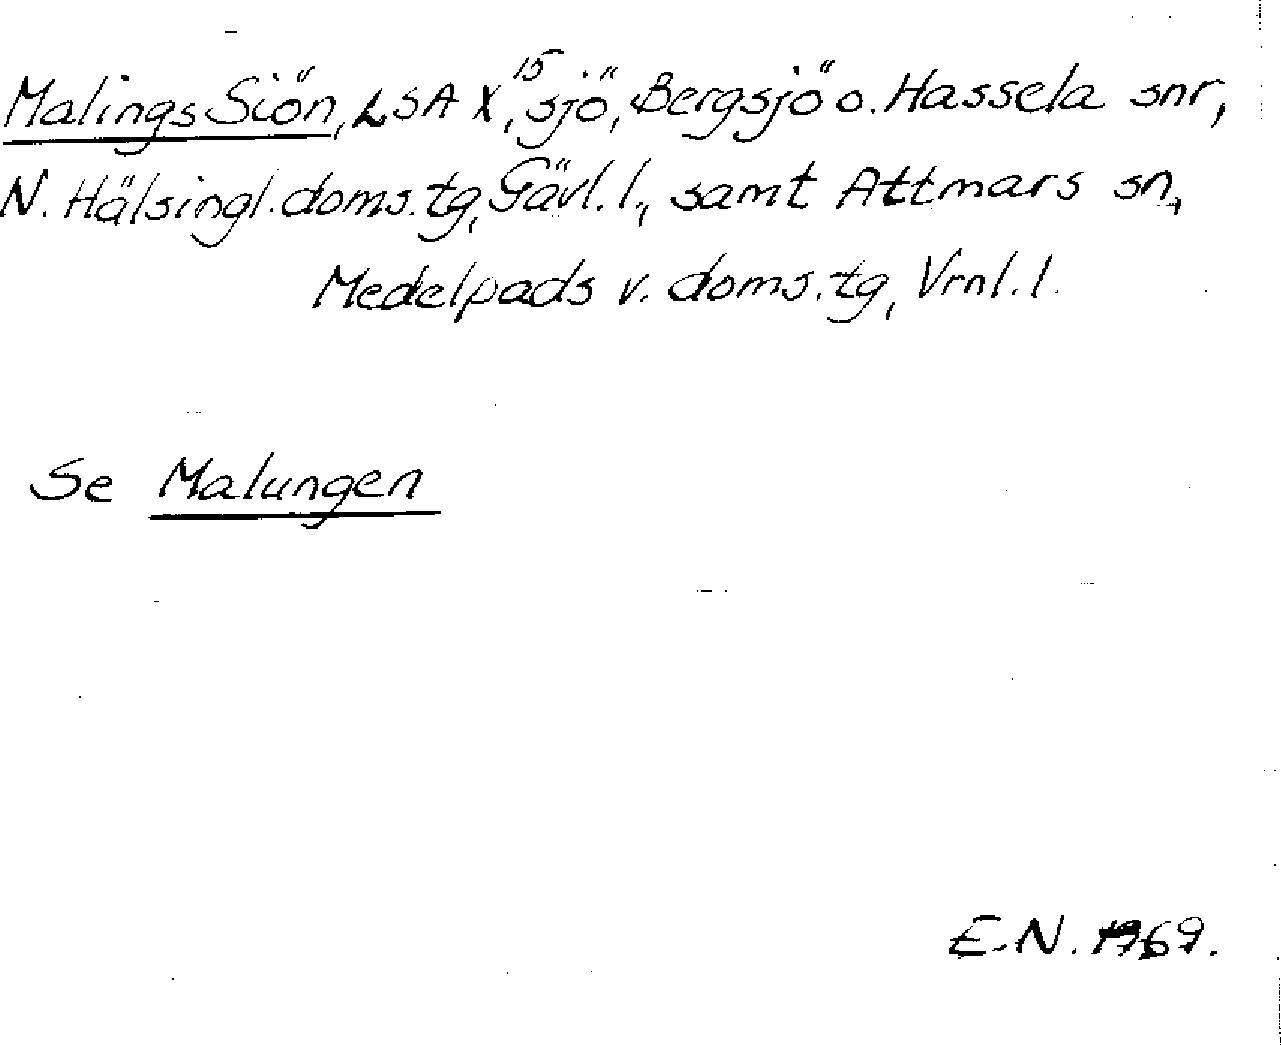 Malings Siön, LSA X¹⁵, sjö, Bergsjö o. Hassela snr,
N. Hälsingl. doms.tg, Gävl. l., samt Attmars sn,
Medelpads v. doms.tg, Vrnl. l.
Se Malungen
E.N. 1969.